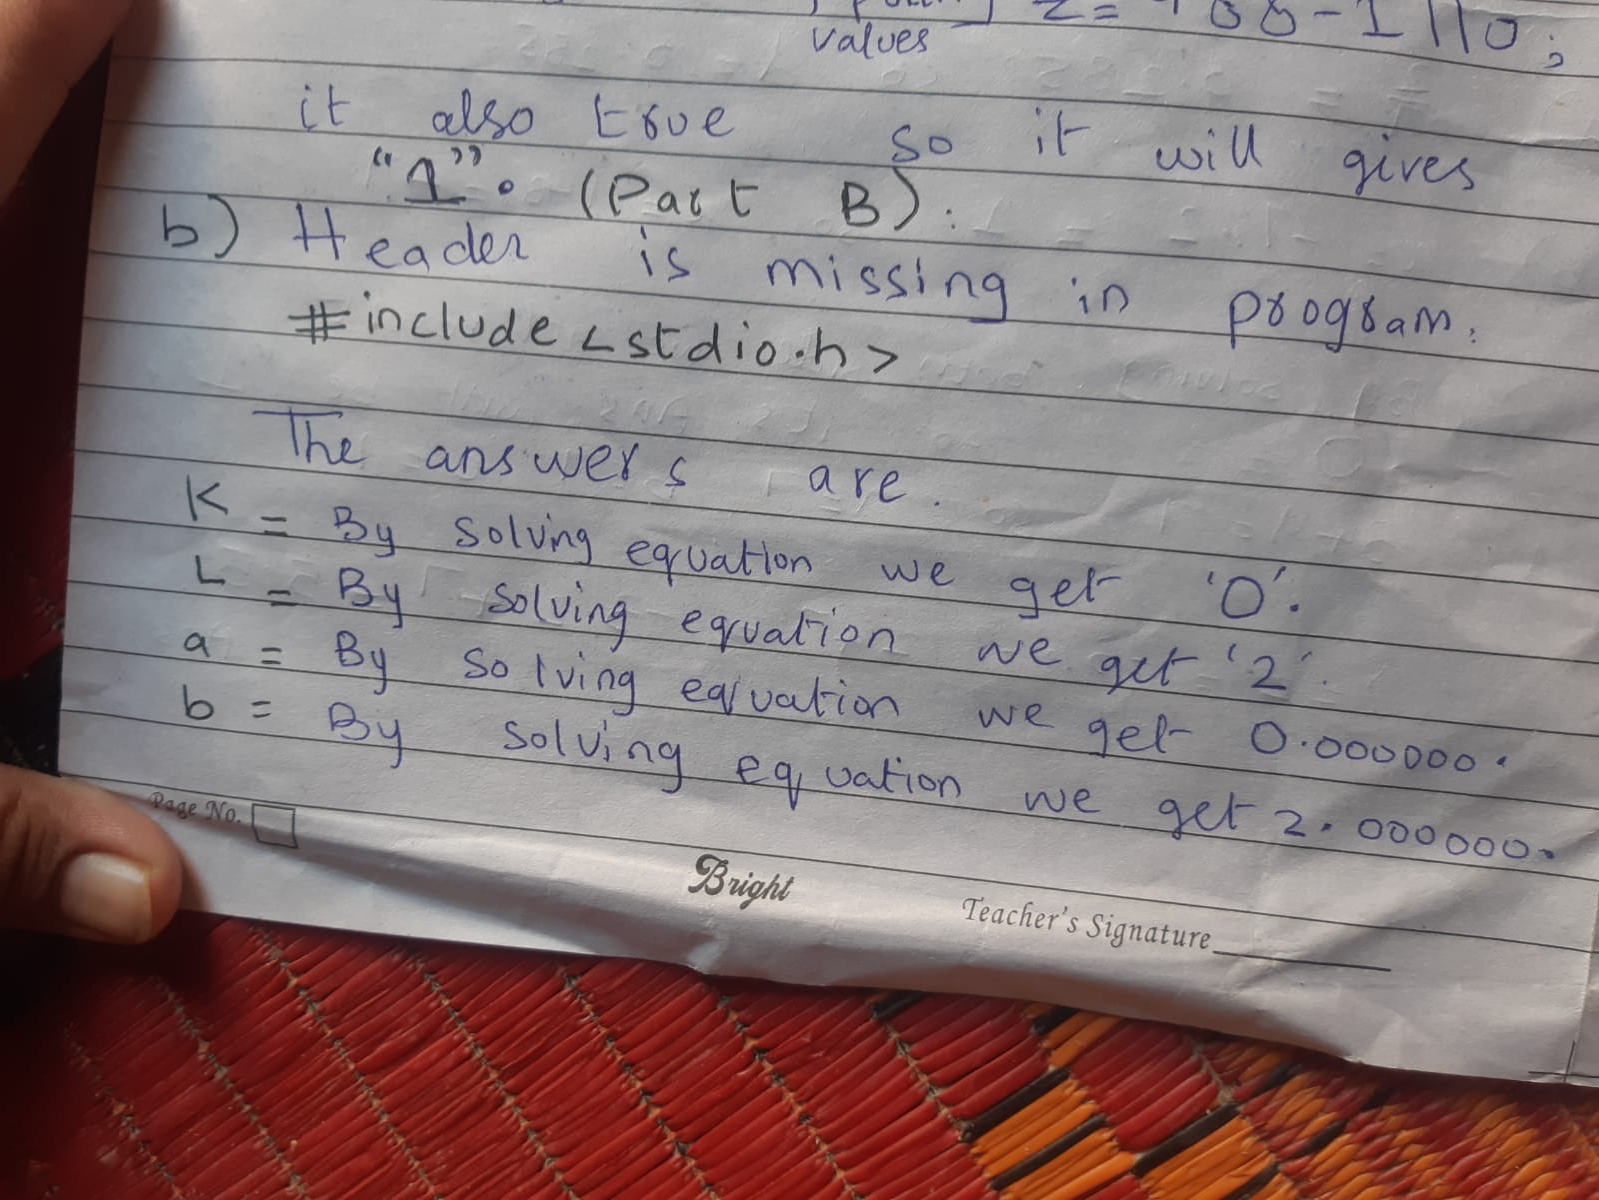 values
it also true so it will gives
"1". (Part B).
b) Header is missing in program.
#include <stdio.h>
The answers are.
K = By solving equation we get '0'.
L = By solving equation we get '2'.
a = By solving equation we get 0.000000.
b = By solving equation we get 2.000000.
Page No.
Bright
Teacher's Signature